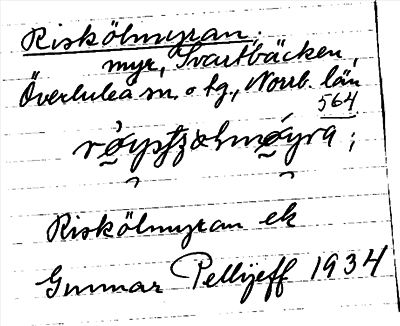 Riskölmyran;
myr, Svartbäcken,
Överluleå sn. o tg., Norrb. län
564
Riskölmyran ek
Gunnar Pellijeff 1934